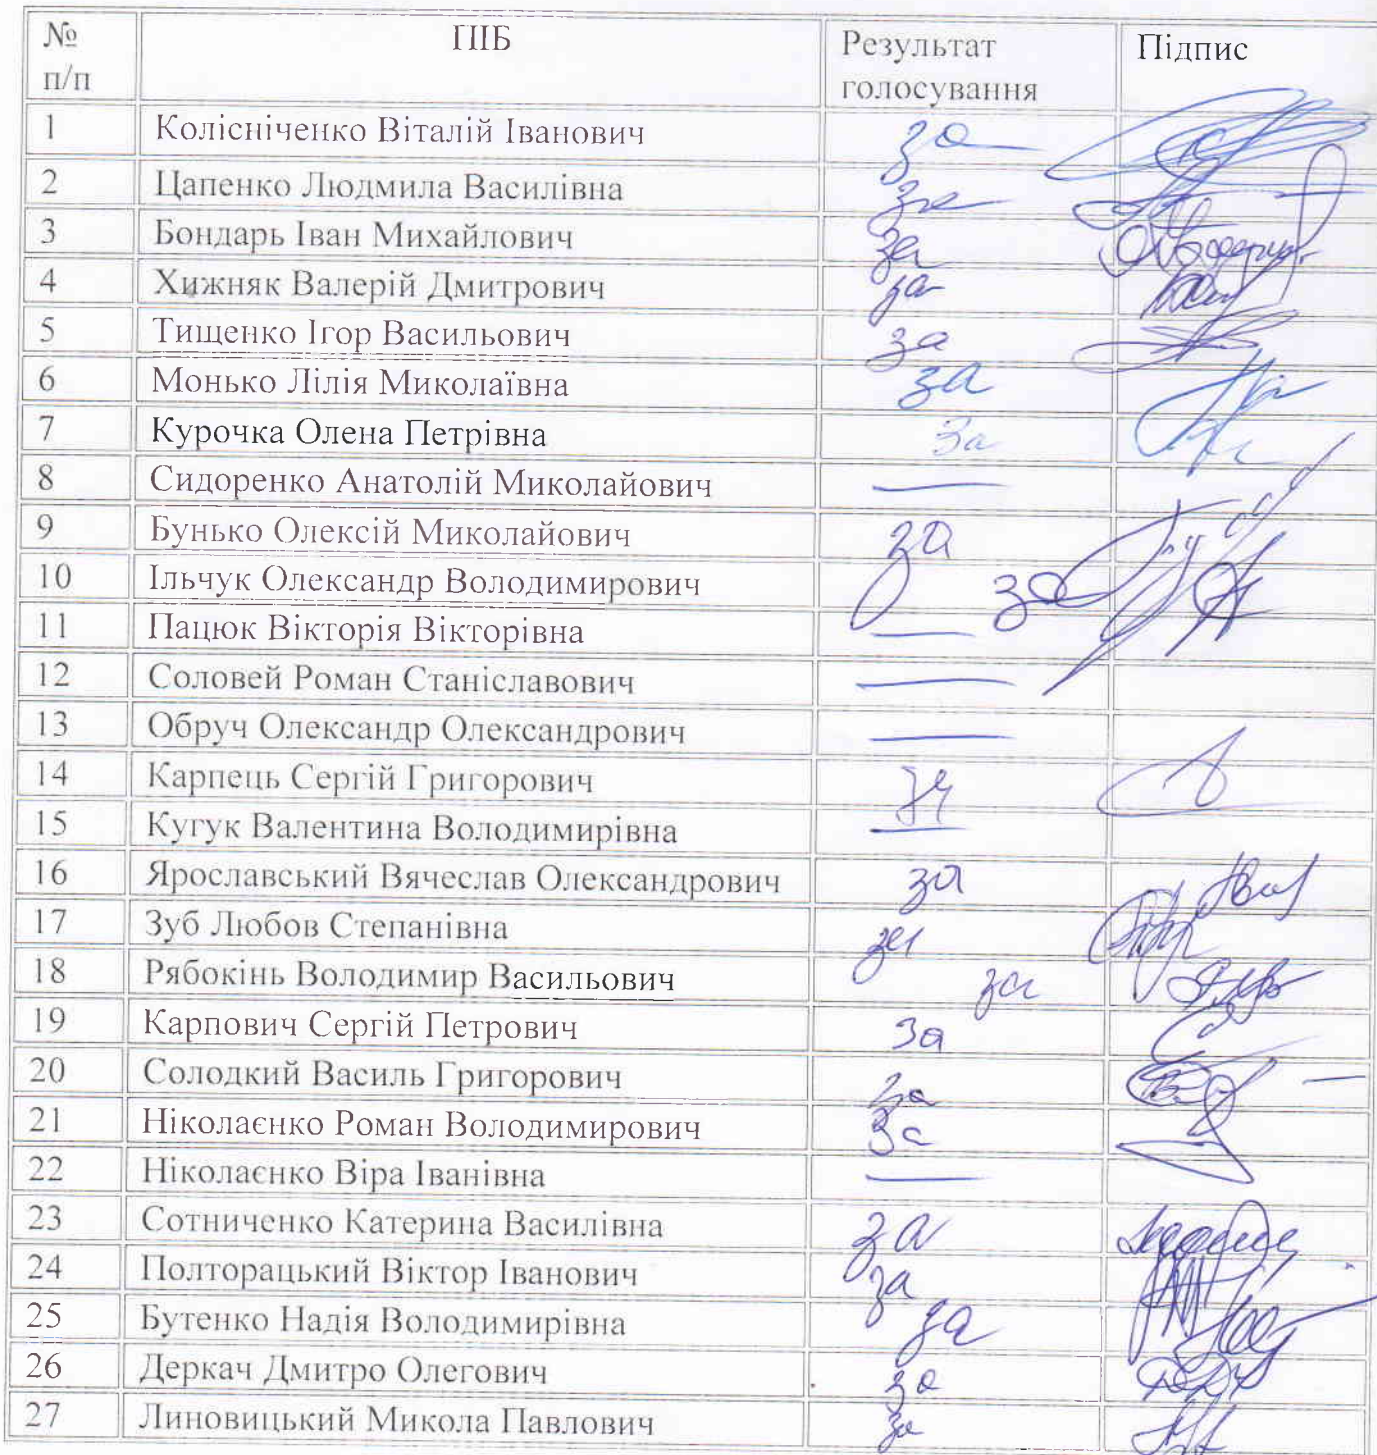 № п/п ПІБ Результат голосування Підпис
1 Колісніченко Віталій Іванович за
2 Цапенко Людмила Василівна за
3 Бондарь Іван Михайлович за
4 Хижняк Валерій Дмитрович за
5 Тищенко Ігор Васильович за
6 Монько Лілія Миколаївна за
7 Курочка Олена Петрівна За
8 Сидоренко Анатолій Миколайович —
9 Бунько Олексій Миколайович за
10 Ільчук Олександр Володимирович за
11 Пацюк Вікторія Вікторівна —
12 Соловей Роман Станіславович —
13 Обруч Олександр Олександрович —
14 Карпець Сергій Григорович за
15 Кугук Валентина Володимирівна —
16 Ярославський Вячеслав Олександрович за
17 Зуб Любов Степанівна за
18 Рябокінь Володимир Васильович за
19 Карпович Сергій Петрович За
20 Солодкий Василь Григорович за
21 Ніколаєнко Роман Володимирович За
22 Ніколаєнко Віра Іванівна —
23 Сотниченко Катерина Василівна за
24 Полторацький Віктор Іванович за
25 Бутенко Надія Володимирівна за
26 Деркач Дмитро Олегович за
27 Линовицький Микола Павлович за